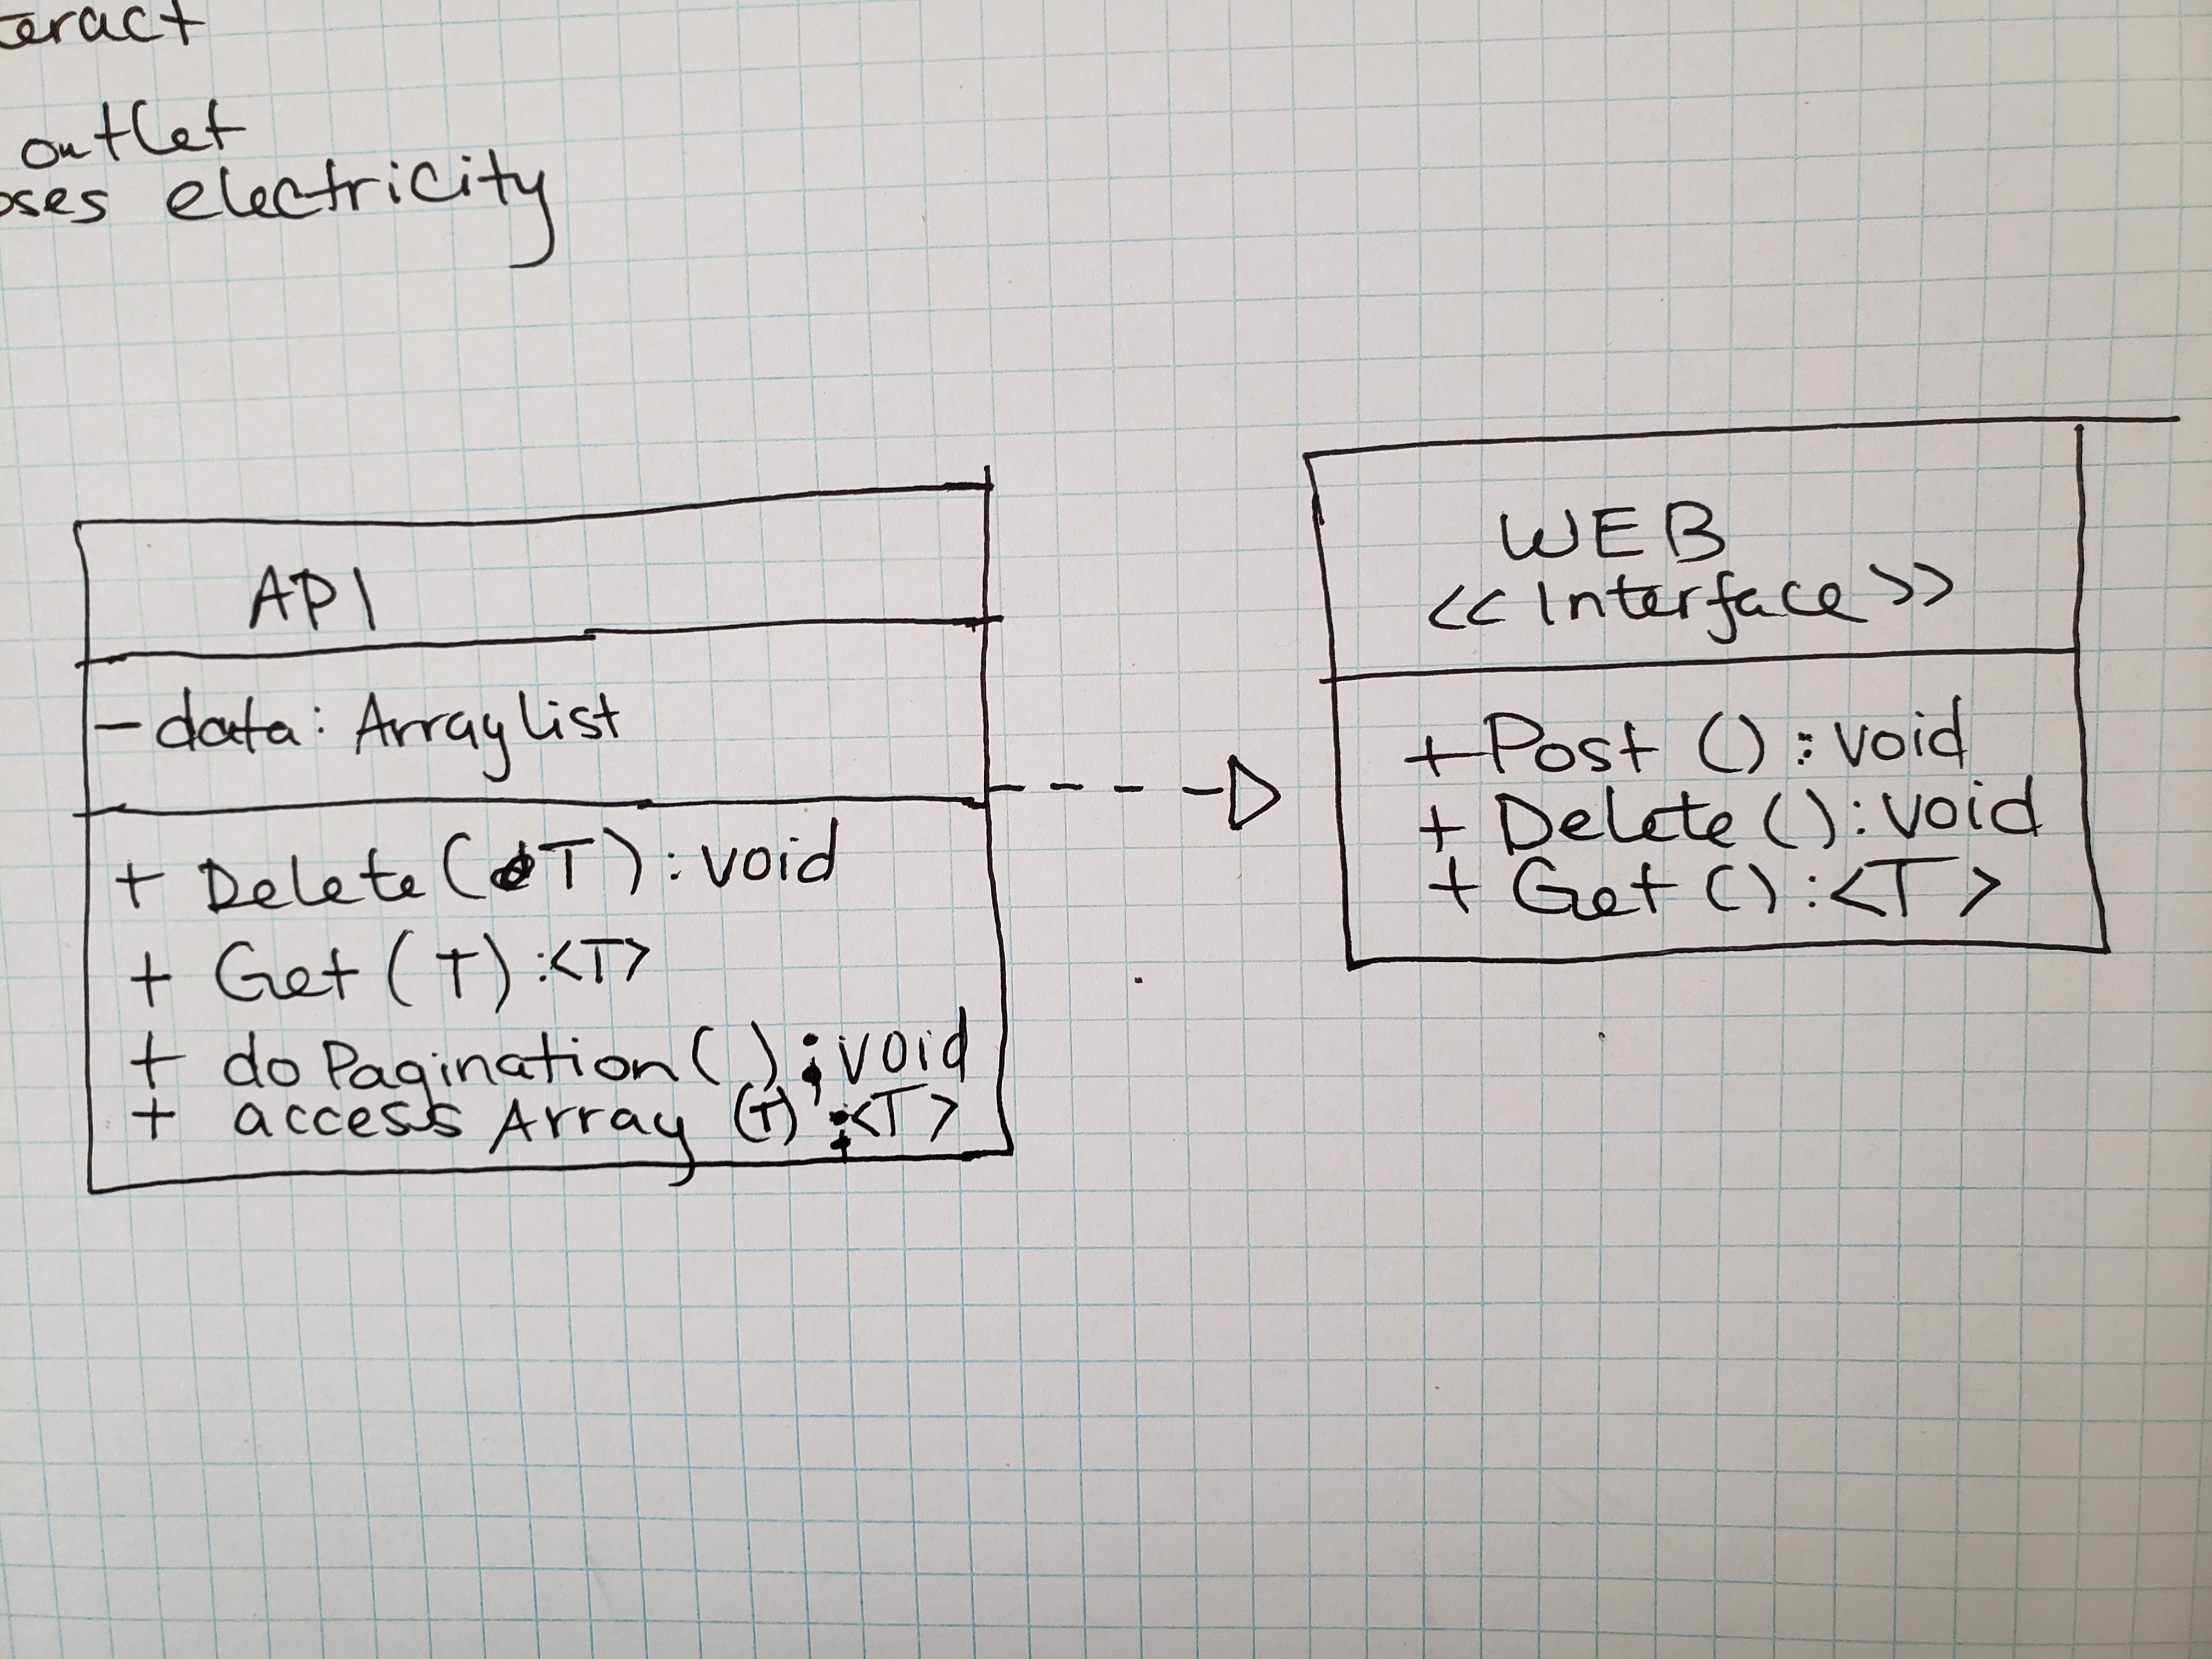 teract
outlet
oses electricity
API
- data: Arraylist
+ Delete(T): void
+ Get (T) :<T>
+ do Pagination( ) : void
+ access Array (T) :<T>
WEB
<< Interface >>
+ Post () : void
+ Delete () : void
+ Get () : <T>